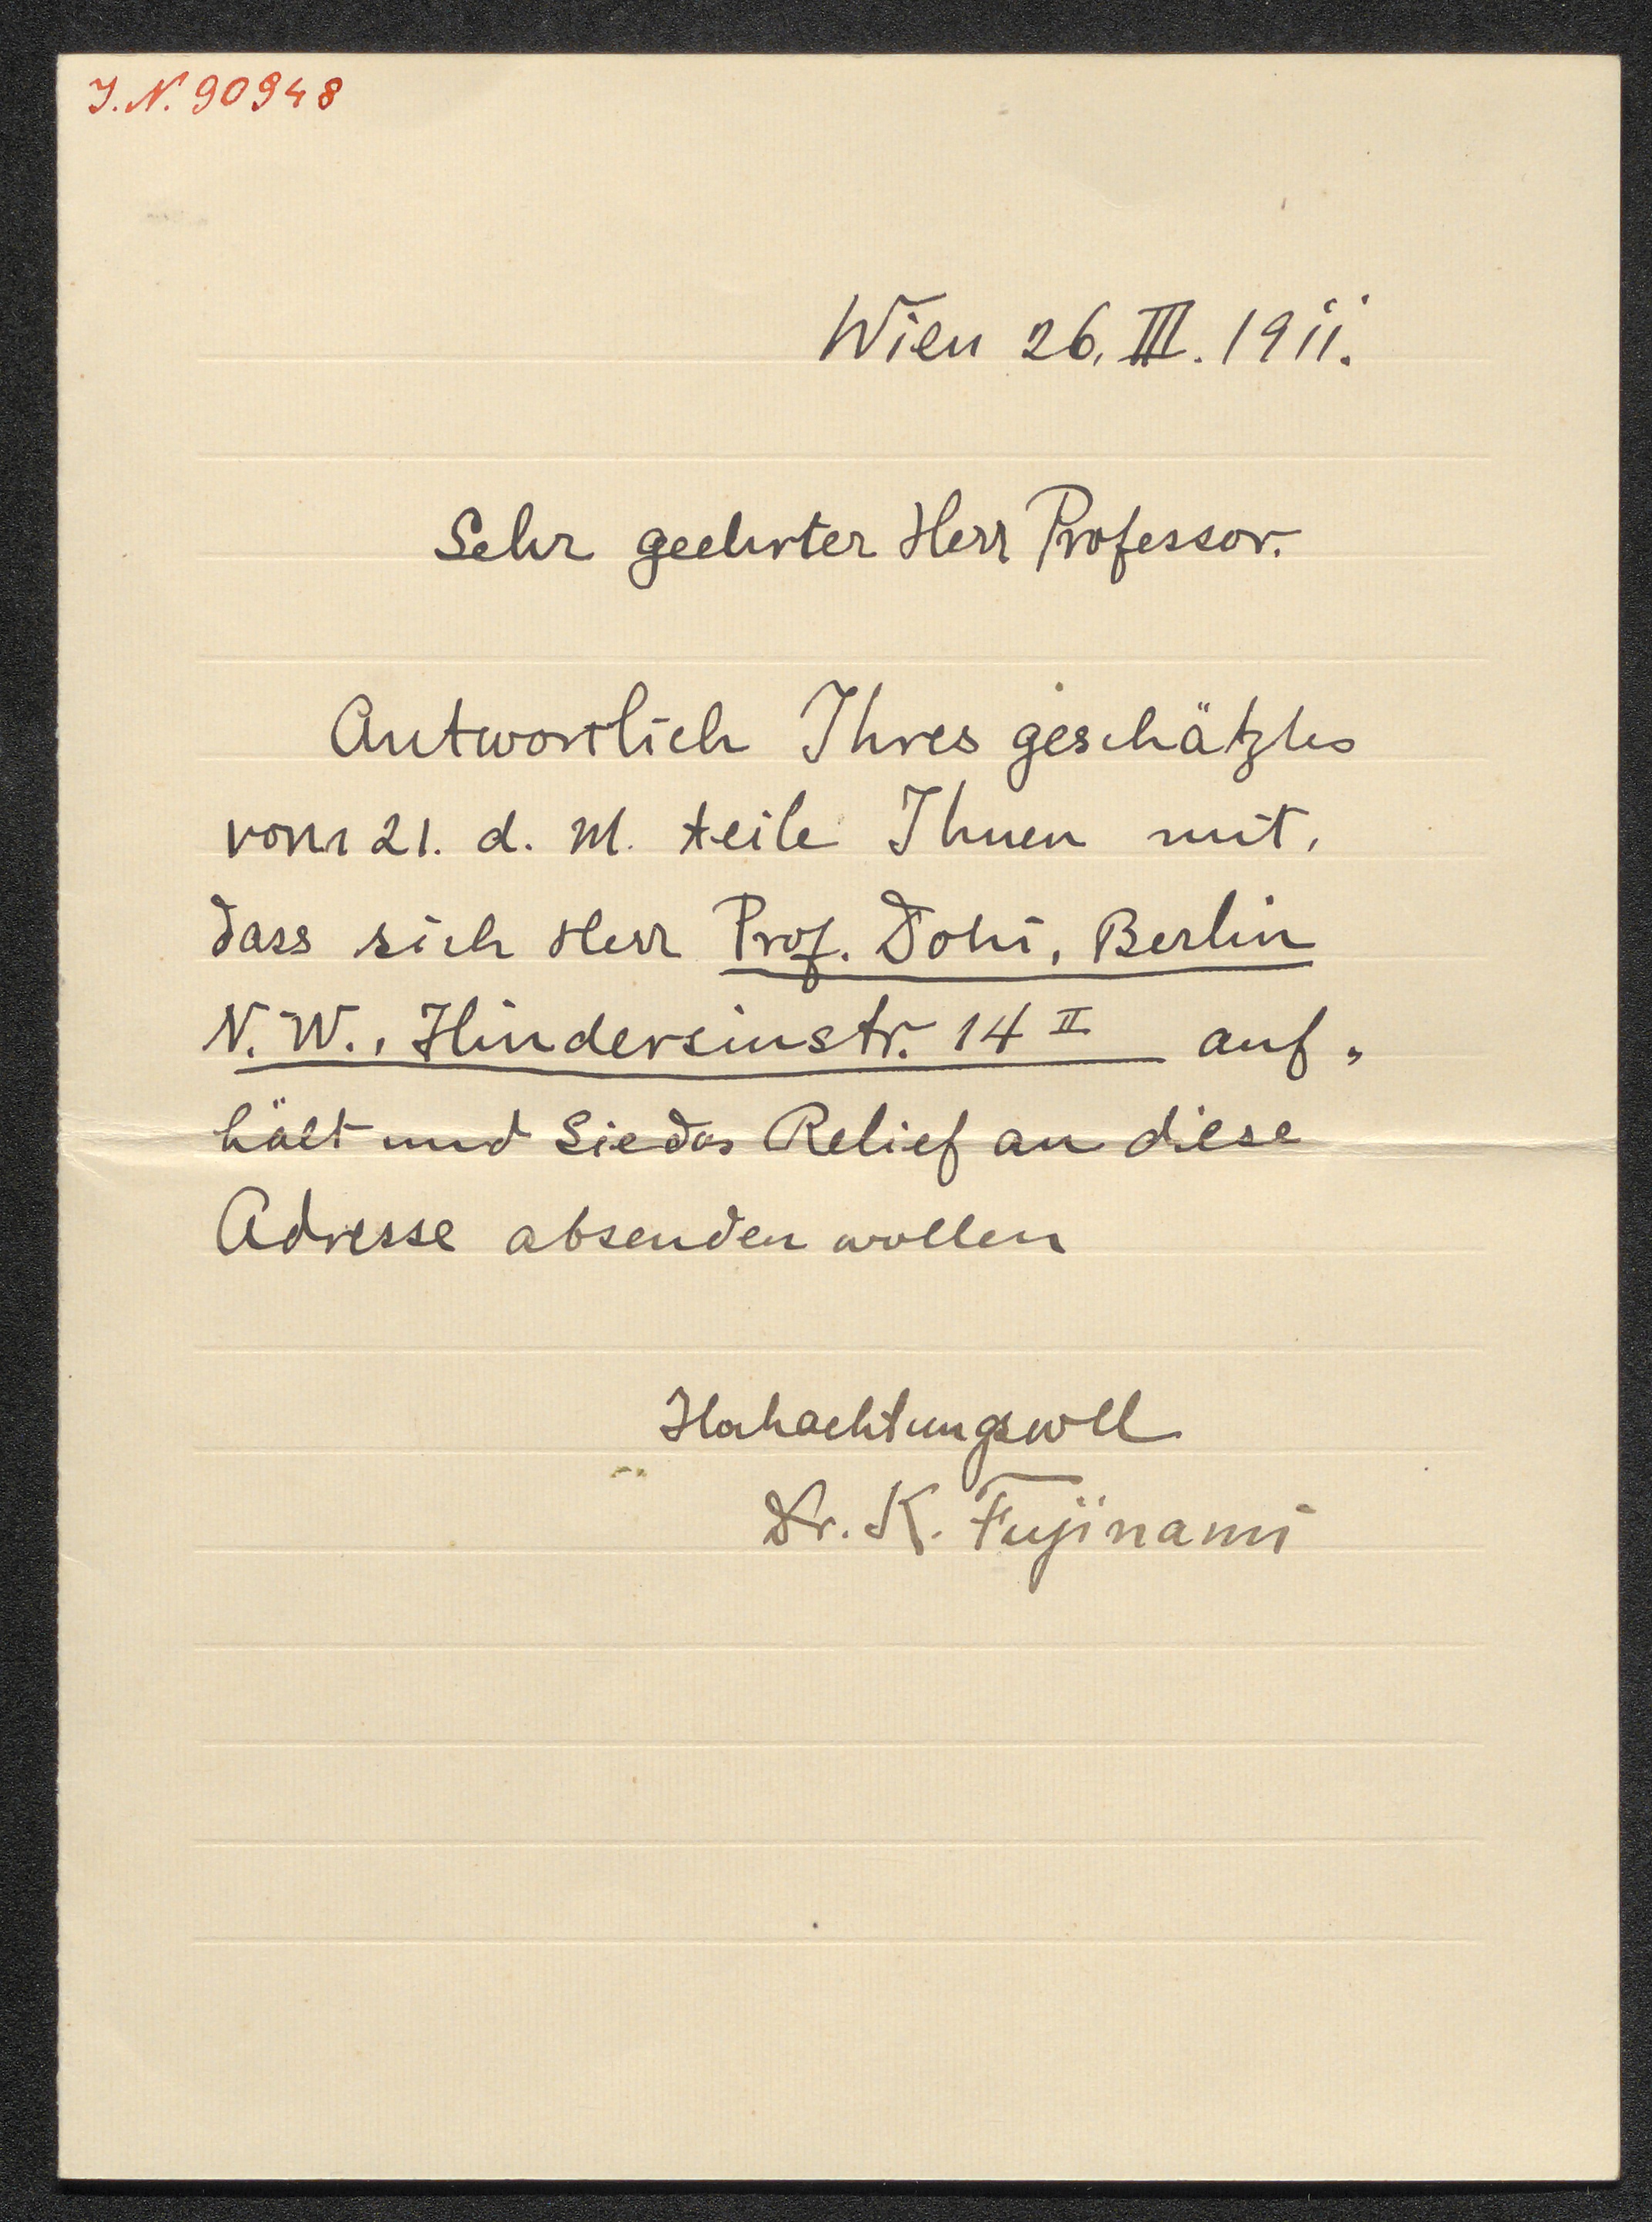 J. N. 90948
Wien 26. III. 1911.
Sehr geehrter Herr Professor.
Antwortlich Ihres geschätztes
vom 21. d. M. teile Ihnen mit,
dass sich Herr Prof. Dohi, Berlin
N. W., Hindersinstr. 14 II auf-
hält und Sie das Relief an diese
Adresse absenden wollen
Hochachtungsvoll
Dr. K. Fujinami